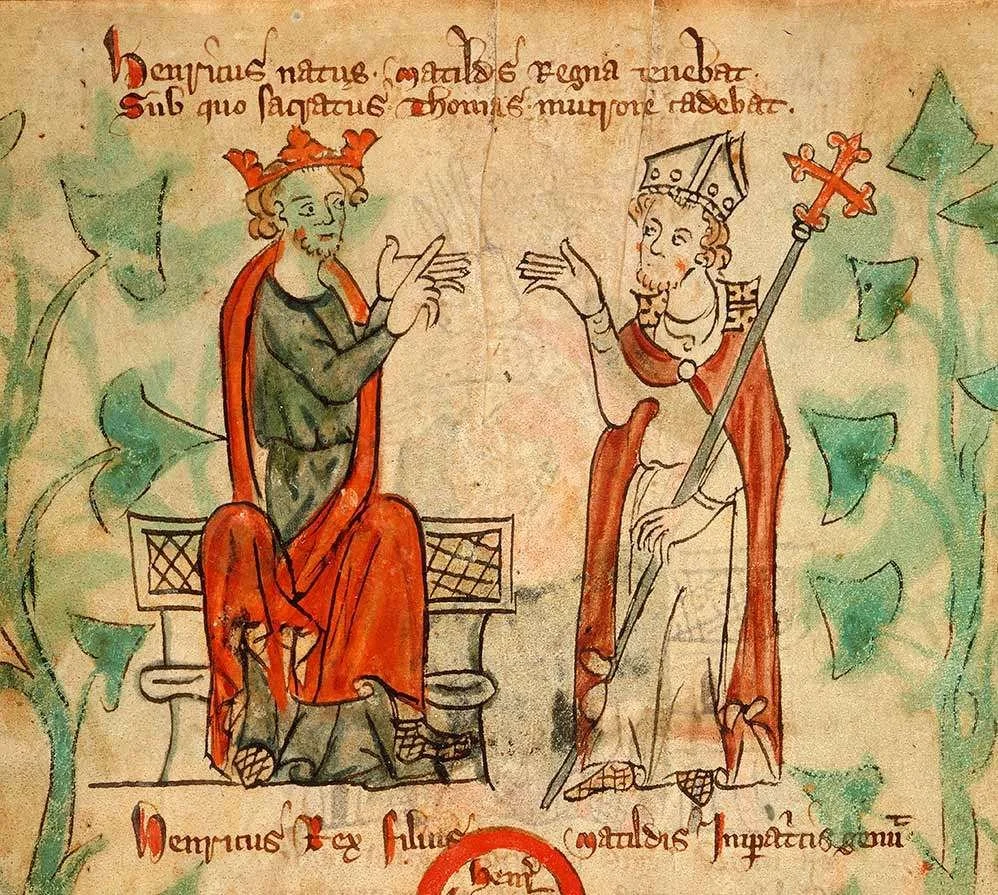 Henricus natus · Matildis Regna tenebat ·
Sub quo sacratus · Thomas · mucrone cadebat .
Henricus Rex filius Matildis Imperatricis
henr